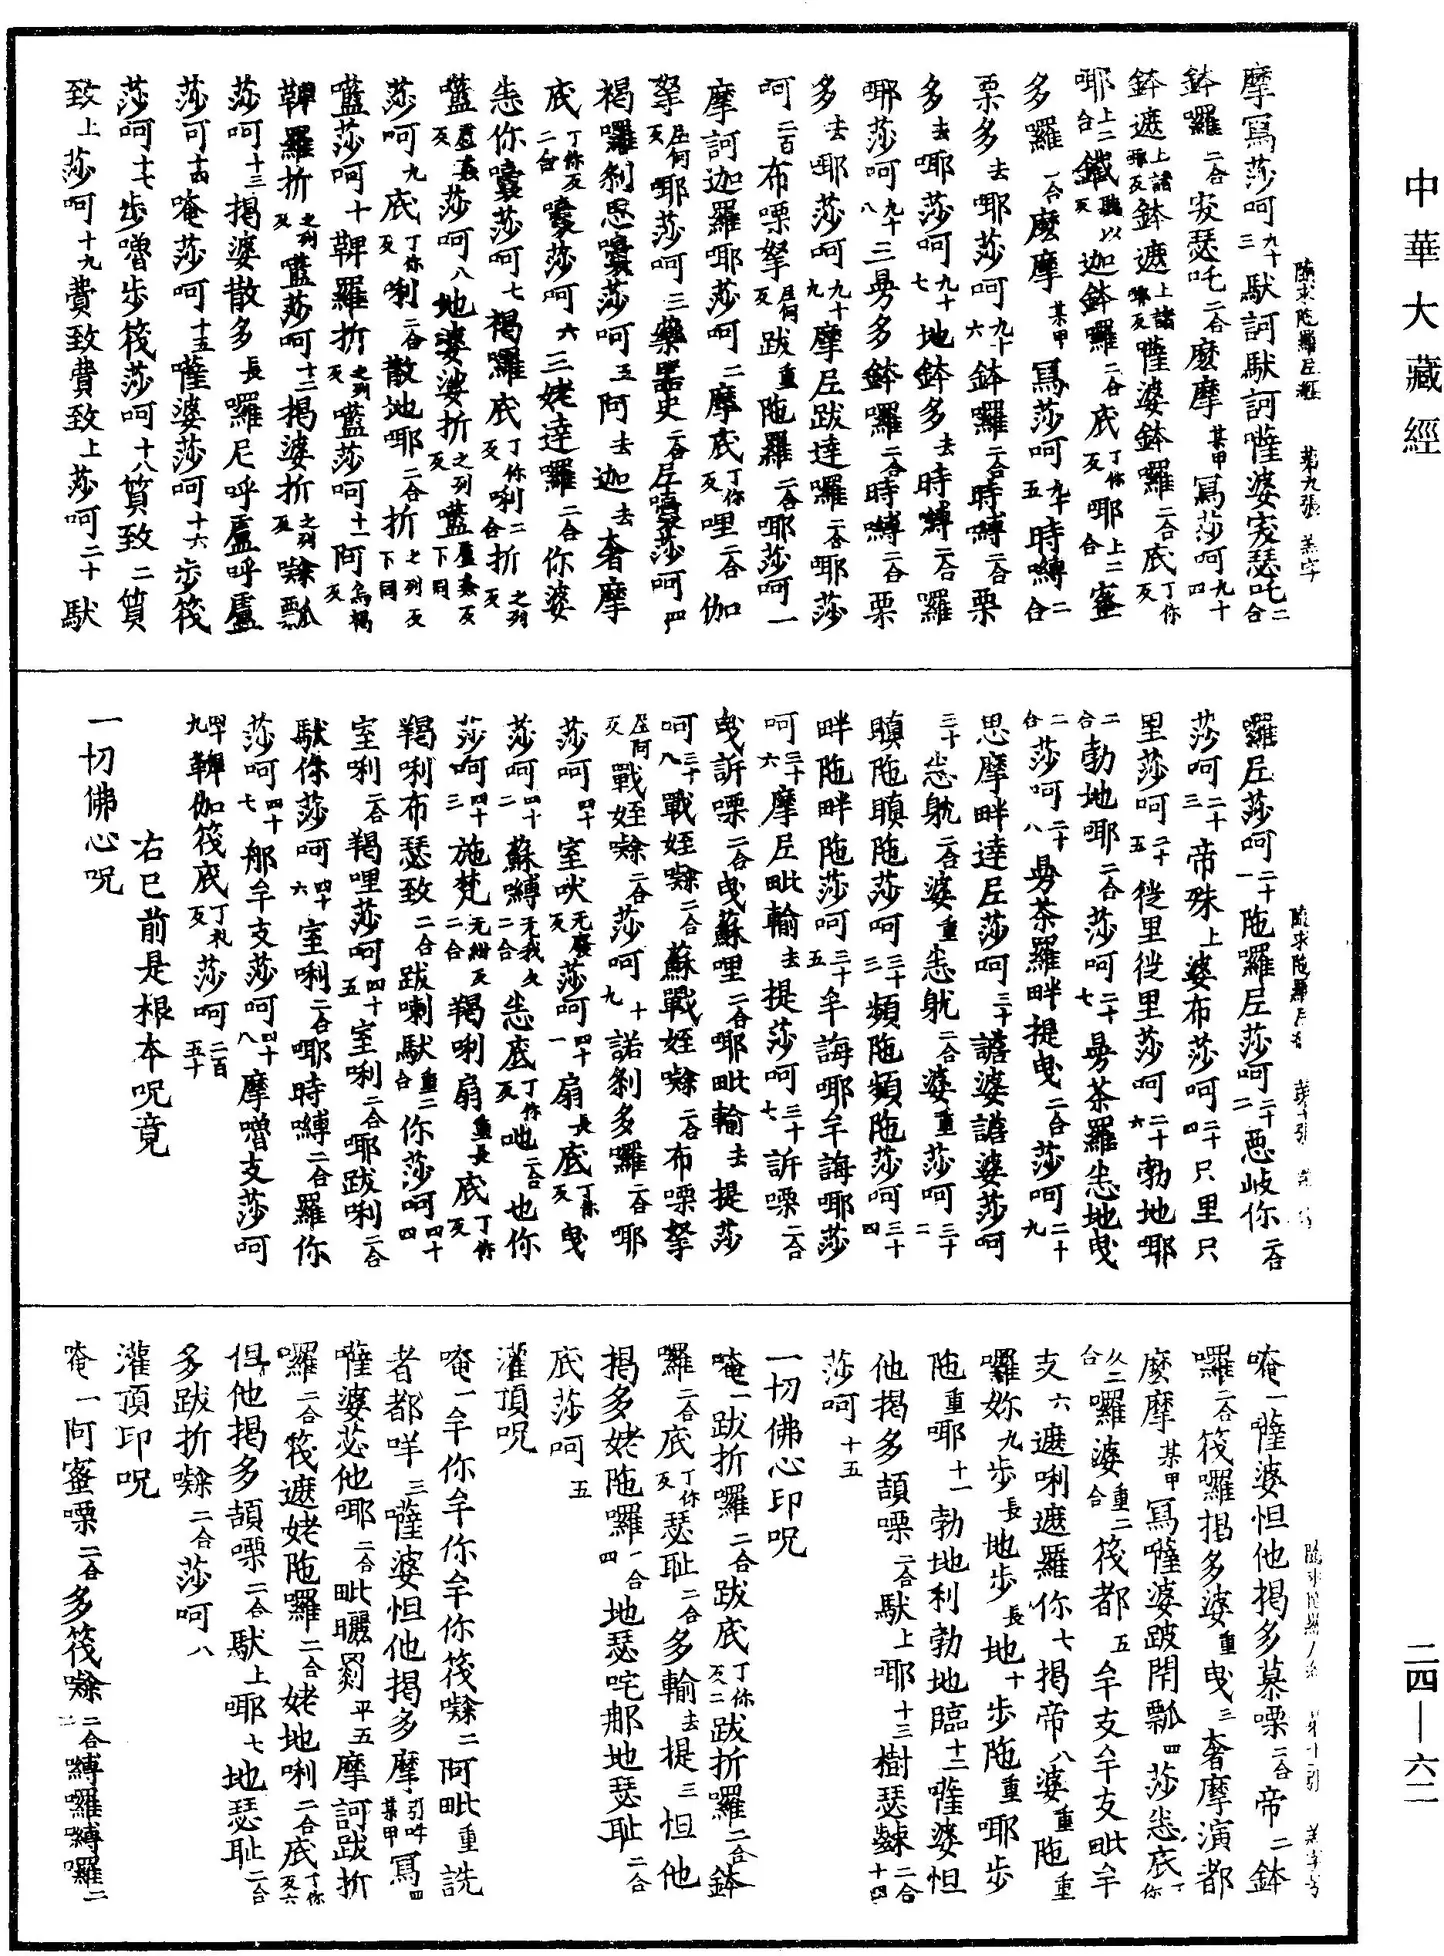 中華大藏經
二四—六二
摩寫莎呵九十三馱訶馱訶薩婆宊瑟吒二合
鉢囉二合宊瑟吒二合麼摩某甲寫莎呵九十四
鉢遮上諸耶反鉢遮上諸耶反薩婆鉢囉二合底丁你反
耶上二合鐵聽以反迦鉢囉二合底丁你反耶上二合蜜
多囉二合麼摩某甲寫莎呵九十五時縛二合
栗多去耶莎呵九十六鉢囉二合時縛二合栗
多去耶莎呵九十七地鉢多去時縛二合囉
耶莎呵九十八三勇多鉢囉二合時縛二合栗
多去耶莎呵九十九摩尼跋達囉二合耶莎
呵二百布㗚拏尼何反跋重陁羅二合耶莎呵一
摩訶迦羅耶莎呵二摩底丁你反哩二合伽
拏尼何反耶莎呵三藥器史二合尼囔莎呵四
褐囉剎思囔莎呵五阿去迦去奢摩
底丁你反二合囔莎呵六三姥達囉二合你婆
恙你囔莎呵七褐囉底丁你反唎二合折之列反
𡄣莎呵八地婆婆折之列反𡄣下同
莎呵九底丁你反唎二合散地耶二合折之列反下同
𡄣莎呵十鞞羅折之列反𡄣莎呵十一阿烏褐反
鞞羅折之列反𡄣莎呵十二揭婆折之列反㘑瓢
莎呵十三揭婆散多長囉尼呼盧呼盧
莎呵十四唵莎呵十五薩婆莎呵十六步筏
莎呵十七步噜步筏莎呵十八質致二質
致上莎呵十九費致費致上莎呵二十馱
羅尼莎呵二十一陁囉尼莎呵二十二惡岐你二合
莎呵二十三帝殊上婆布莎呵二十四只里只
里莎呵二十五徙里徙里莎呵二十六勃地耶
二合勃地耶二合莎呵二十七勇茶羅恙地曳
二合莎呵二十八勇茶羅畔提曳二合莎呵二十九
思摩畔達尼莎呵三十譫婆譫婆莎呵
三十恙躭二合婆重恙躭二合婆重莎呵三十二
瞋陁瞋陁莎呵三十三頻陁頻陁莎呵三十四
畔陁畔陁莎呵三十五牟誨耶牟誨耶莎
呵三十六摩尼毗輸去提莎呵三十七訴㗚二合
曳訴㗚二合曳蘇哩二合耶毗輸去提莎
呵三十八戰姪㘑二合蘇戰姪㘑二合布㗚拏
尼阿反戰姪㘑二合莎呵九十諾剎多囉二合耶
莎呵四十室吠无廢反莎呵四十一扇長底丁你反曳
莎呵四十二蘇縛无我反二合恙底丁你反也二合也你
莎呵四十三施梵无紺反二合羯唎扇重長底丁你反
羯唎布瑟致二合跋喇馱重二合你莎呵四十四
室唎二合羯哩莎呵四十五室唎二合耶跋唎二合
馱你莎呵四十六室唎二合耶時縛二合羅你
莎呵四十七那牟支莎呵四十八摩噜支莎呵
四十九鞞伽筏底丁礼反莎呵二百五十
右已前是根本呪竟
一切佛心呪
唵一薩婆怛他揭多慕㗚二合帝二鉢
囉二合筏囉揭多婆重曳三奢摩演都
麼摩某甲寫薩婆跛閇瓢四莎恙底丁你
反二合囉婆重二合筏都五牟支牟支毗牟
支六遮唎遮羅你七揭帝八婆重陁重
囉妳九步長地步長地十步陁重耶步
陁重耶十一勃地利勃地臨十二薩婆怛
他揭多頡㗚二合馱上耶十三樹瑟㯟二合十四
莎呵十五
一切佛心印呪
唵一跋折囉二合跋底丁你反二跋折囉二合鉢
囉二合底丁你反瑟耻二合多輸去提三怛他
揭多姥陁囉二合四地瑟咤那地瑟耻二合
底莎呵五
灌頂呪
唵一牟你牟你牟你筏㘑二阿毗重詵
者都咩三薩婆怛他揭多摩引吽某甲寫四
薩婆苾他耶二合毗曬罽平五摩訶跋折
囉二合筏遮姥陁囉二合姥地唎二合底丁你反六
怛他揭多頡㗚二合馱上耶七地瑟耻二合
多跋折㘑二合莎呵八
灌頂印呪
唵一阿蜜㗚二合多筏㘑二合二縛囉縛囉二